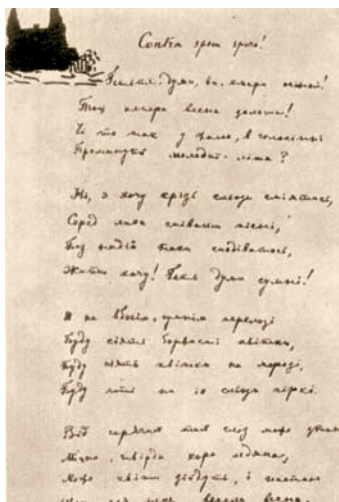 Contra spem spero!
Гетьте, думи, ви, хмари осінні!
Тож тепера весна золота!
Чи то так у жалю, в голосінні
Проминуть молодії літа?
Ні, я хочу крізь сльози сміятись,
Серед лиха співати пісні,
Без надії таки сподіватись,
Жити хочу! Геть думи сумні!
Я на вбогім, сумнім перелозі
Буду сіять барвисті квітки,
Буду сіять квітки на морозі,
Буду лить на їх сльози гіркі.
Від гарячих тих сліз може
Міцна, твірда кора ледяна,
Може квіти зійдуть, і настане
мене весела весна.